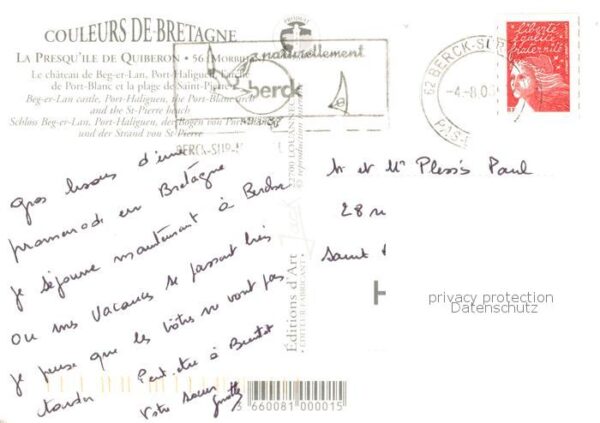 COULEURS DE BRETAGNE
LA PRESQU'ILE DE QUIBERON • 56 (MORBIHAN)
Le château de Beg-er-Lan, Port-Haliguen, l'arche
de Port-Blanc et la plage de Saint-Pierre
Beg-er-Lan castle, Port-Haliguen, the Port-Blanc arch
and the St-Pierre beach
Schloss Beg-er-Lan, Port-Haliguen, der Bogen von Port-Blanc
und der Strand von St-Pierre
naturellement
berck
BERCK-SUR-M
62 BERCK-SUR-
-4-8.03
PAS
liberté
égalité
fraternité
Gros bisous d'une
promenade en Bretagne
je séjourne maintenant à Berck
ou mes vacances se passent très
je pense que les vôtres ne vont pas
tarder Peut-être à Bientôt
Votre soeur
Jack
Éditions d'Art
• ÉDITEUR FABRICANT •
22700 LOUANNEC
© reproduction
M et Me Plessis Paul
28 r
Saint
H
privacy protection
Datenschutz
3 660081 000015